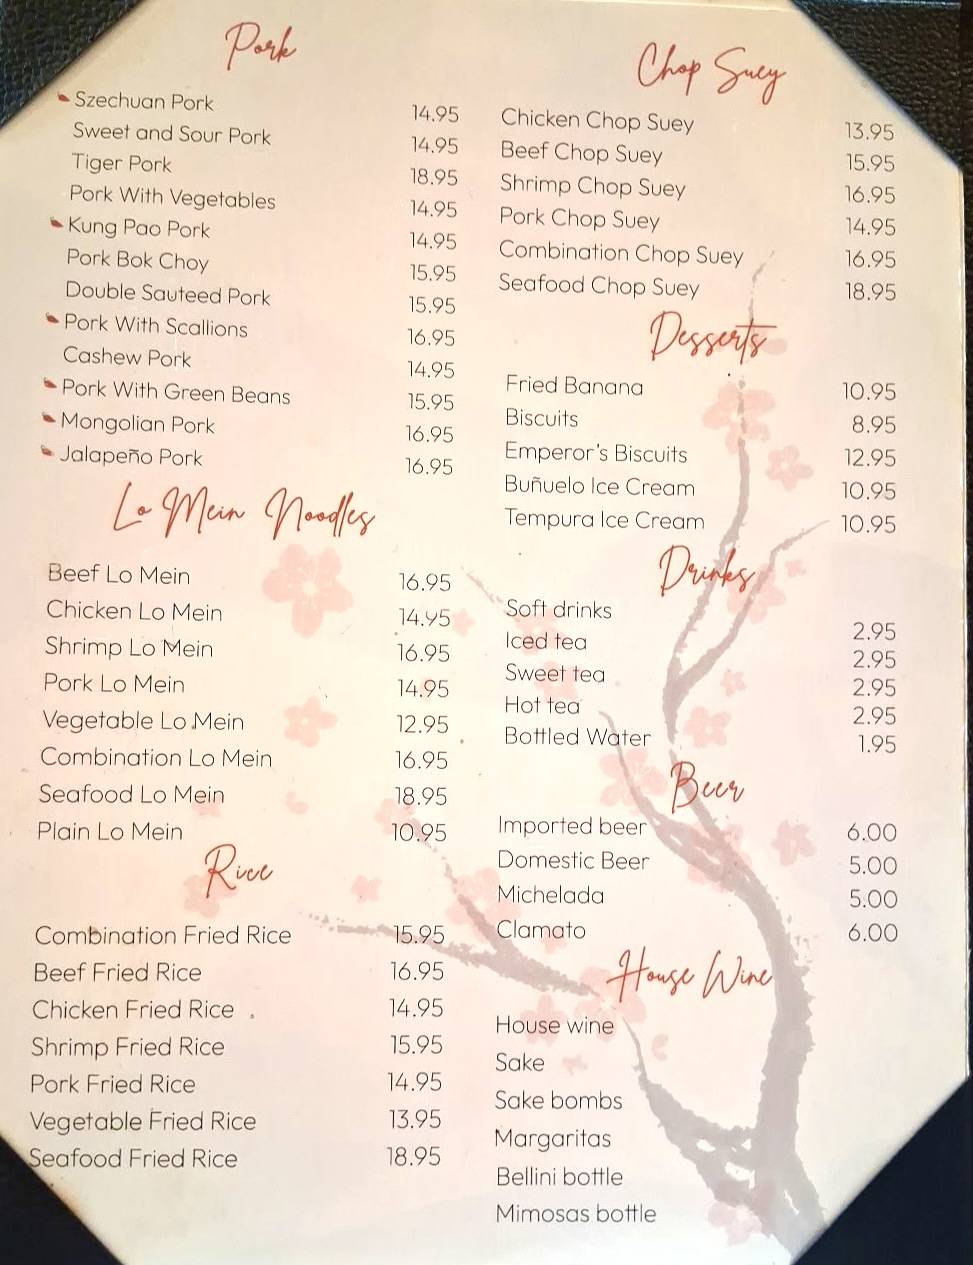 Pork
Szechuan Pork 14.95
Sweet and Sour Pork 14.95
Tiger Pork 18.95
Pork With Vegetables 14.95
Kung Pao Pork 14.95
Pork Bok Choy 15.95
Double Sauteed Pork 15.95
Pork With Scallions 16.95
Cashew Pork 14.95
Pork With Green Beans 15.95
Mongolian Pork 16.95
Jalapeño Pork 16.95
Lo Mein Noodles
Beef Lo Mein 16.95
Chicken Lo Mein 14.95
Shrimp Lo Mein 16.95
Pork Lo Mein 14.95
Vegetable Lo Mein 12.95
Combination Lo Mein 16.95
Seafood Lo Mein 18.95
Plain Lo Mein 10.95
Rice
Combination Fried Rice 15.95
Beef Fried Rice 16.95
Chicken Fried Rice 14.95
Shrimp Fried Rice 15.95
Pork Fried Rice 14.95
Vegetable Fried Rice 13.95
Seafood Fried Rice 18.95
Chop Suey
Chicken Chop Suey 13.95
Beef Chop Suey 15.95
Shrimp Chop Suey 16.95
Pork Chop Suey 14.95
Combination Chop Suey 16.95
Seafood Chop Suey 18.95
Desserts
Fried Banana 10.95
Biscuits 8.95
Emperor's Biscuits 12.95
Buñuelo Ice Cream 10.95
Tempura Ice Cream 10.95
Drinks
Soft drinks 2.95
Iced tea 2.95
Sweet tea 2.95
Hot tea 2.95
Bottled Water 1.95
Beer
Imported beer 6.00
Domestic Beer 5.00
Michelada 5.00
Clamato 6.00
House Wine
House wine
Sake
Sake bombs
Margaritas
Bellini bottle
Mimosas bottle